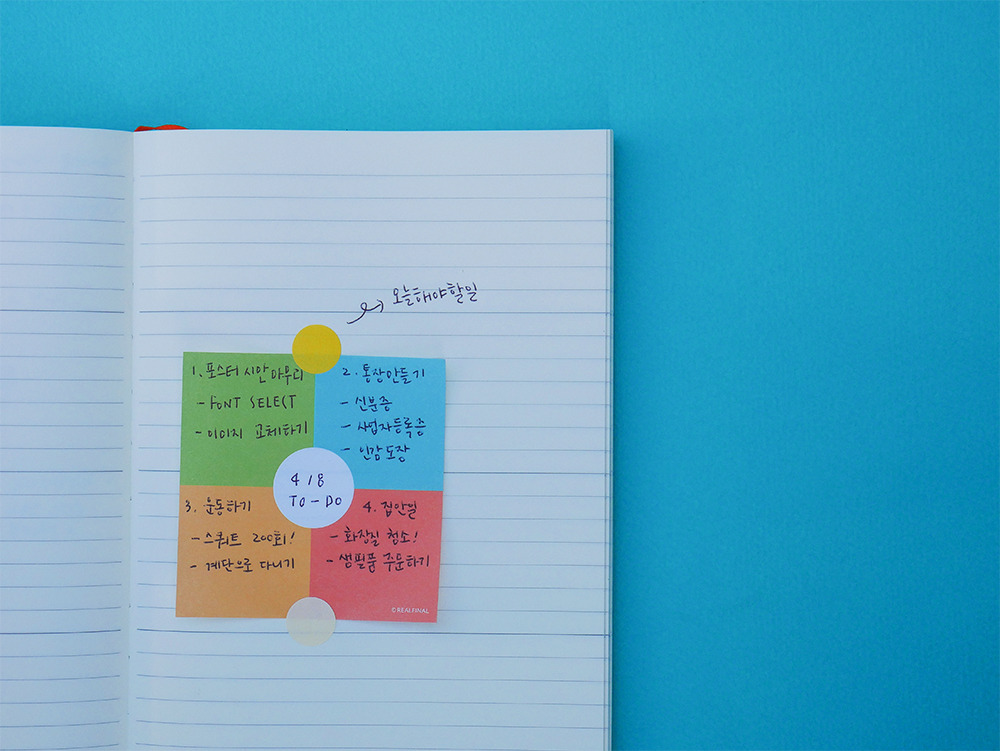 오늘해야할일
1. 포스터 시안 마무리
- FONT SELECT
- 이미지 교체하기
2. 통장만들기
- 신분증
- 사업자등록증
- 인감도장
4/8
TO-DO
3. 운동하기
- 스쿼트 200회!
- 계단으로 다니기
4. 집안일
- 화장실 청소!
- 생필품 주문하기
©REALFINAL